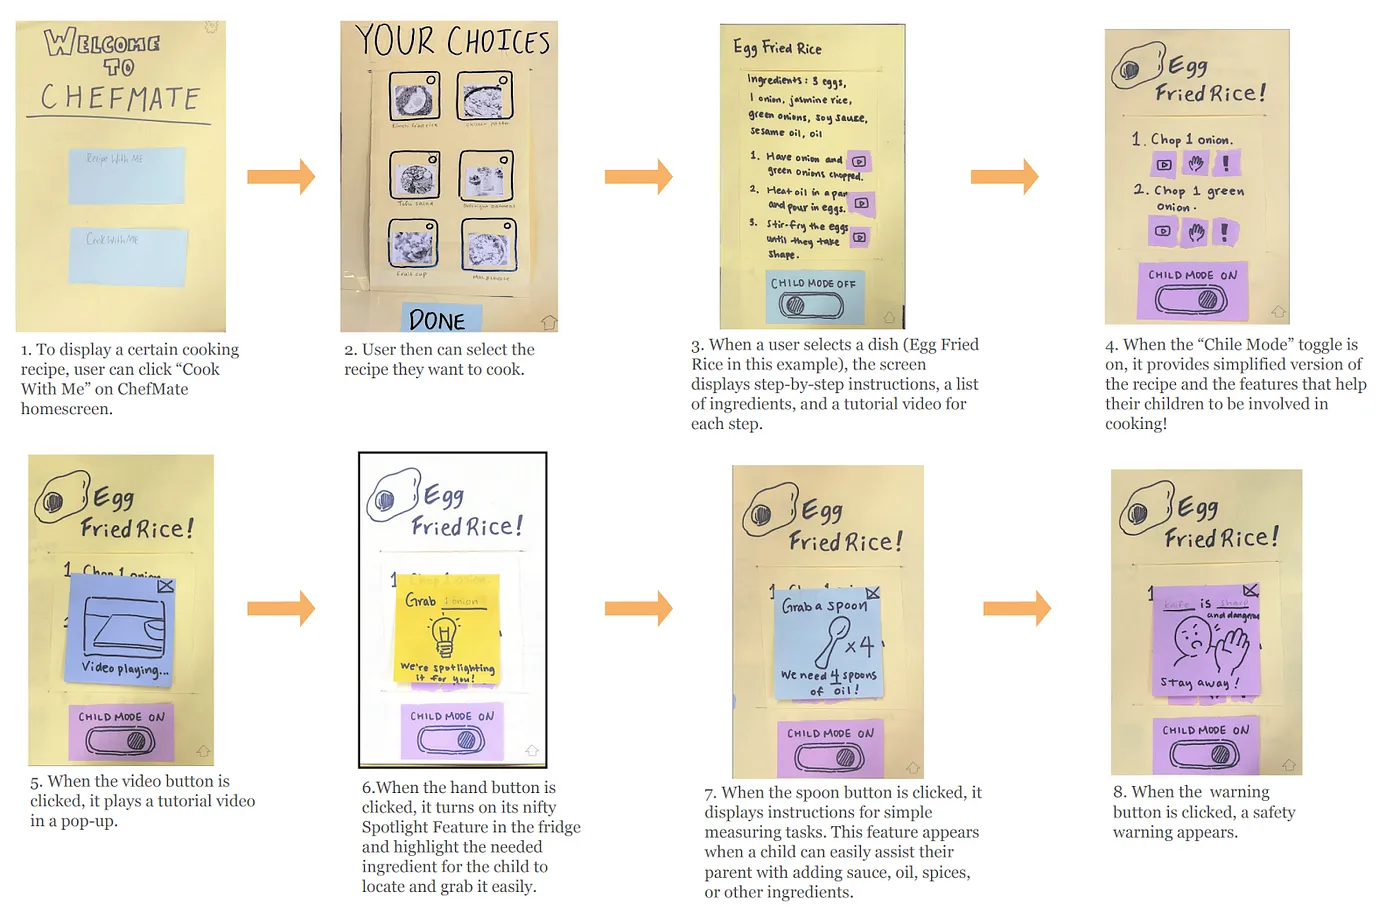 WELCOME
TO
CHEFMATE
Recipe With ME
Cook With ME
1. To display a certain cooking
recipe, user can click “Cook
With Me” on ChefMate
homescreen.
YOUR CHOICES
Tofu salad
Fruit cup
DONE
2. User then can select the
recipe they want to cook.
Egg Fried Rice
Ingredients: 3 eggs,
1 onion, jasmine rice,
green onions, soy sauce,
sesame oil, oil
1. Have onion and
green onions chopped.
2. Heat oil in a pan
and pour in eggs.
3. Stir-fry the eggs
until they take
shape.
CHILD MODE OFF
3. When a user selects a dish (Egg Fried
Rice in this example), the screen
displays step-by-step instructions, a list
of ingredients, and a tutorial video for
each step.
Egg
Fried Rice!
1. Chop 1 onion.
!
2. Chop 1 green
onion.
!
CHILD MODE ON
4. When the “Chile Mode” toggle is
on, it provides simplified version of
the recipe and the features that help
their children to be involved in
cooking!
Egg
Fried Rice!
1 Chop 1 onion
Video playing...
CHILD MODE ON
5. When the video button is
clicked, it plays a tutorial video
in a pop-up.
Egg
Fried Rice!
1 Chop 1 onion.
Grab 1 onion
We're spotlighting
it for you!
CHILD MODE ON
6.When the hand button is
clicked, it turns on its nifty
Spotlight Feature in the fridge
and highlight the needed
ingredient for the child to
locate and grab it easily.
Egg
Fried Rice!
1
Grab a spoon
x4
We need 4 spoons
of oil!
CHILD MODE ON
7. When the spoon button is clicked, it
displays instructions for simple
measuring tasks. This feature appears
when a child can easily assist their
parent with adding sauce, oil, spices,
or other ingredients.
Egg
Fried Rice!
1
knife is sharp
and dangerous
Stay away!
CHILD MODE ON
8. When the warning
button is clicked, a safety
warning appears.